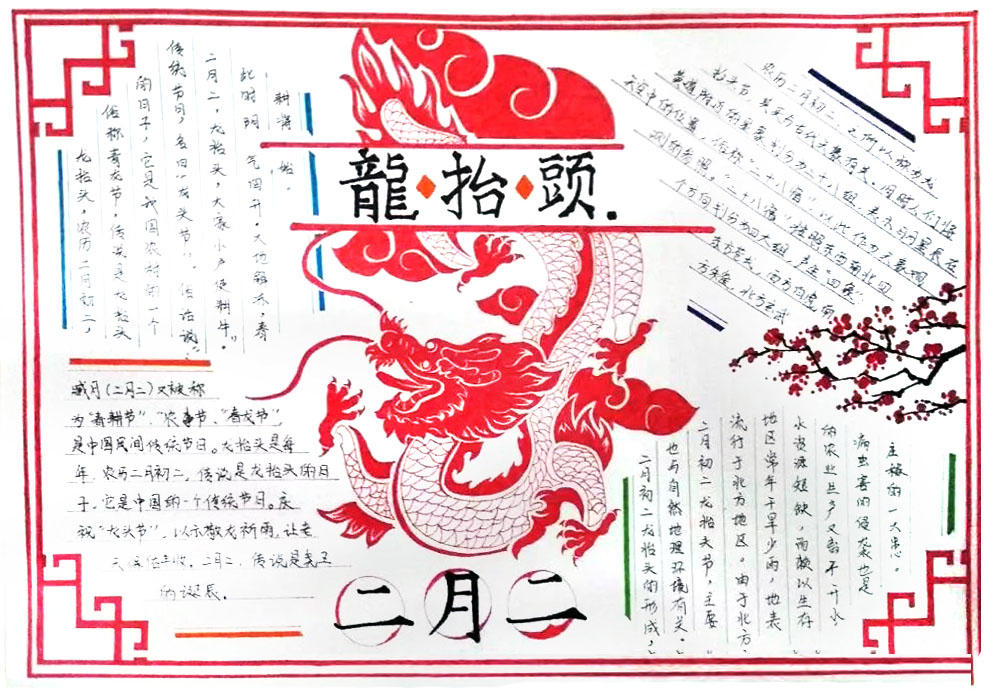 龍抬頭.
龙抬头，农历二月初二，
俗称青龙节，传说是龙抬头
的日子，它是我国农村的一个
传统节日，名曰“龙头节”。俗话说：“
二月二，龙抬头，大家小户使耕牛。”
此时阳气回升，大地解冻，春
耕将始，
农历二月初二，之所以称为龙
抬头节，其实与古代天象有关。旧时人们将
黄道附近的星象划分为二十八组，表示日月星辰在
天空中的位置，俗称“二十八宿”以此作为天象观
测的参照。“二十八宿”按照东西南北四
个方向划分为四大组，产生“四象”
东方苍龙，西方白虎，南
方朱雀，北方玄武
月（二月二）又被称
为“春耕节”、“农事节、“春龙节”
是中国民间传统节日。龙抬头是每
年农历二月初二，传说是龙抬头的日
子，它是中国的一个传统节日。庆
祝“龙头节”，以示敬龙祈雨，让老
天保佑丰收。二月二，传说是尧王
的诞辰。
二月初二龙抬头的形成，
也与自然地理环境有关。
二月初二龙抬头节，主要
流行于北方地区。由于北方，
地区常年干旱少雨，地表
水资源短缺，而赖以生存
的农业生产又离不开水
病虫害的侵袭也是
庄稼的一大患。
二月二